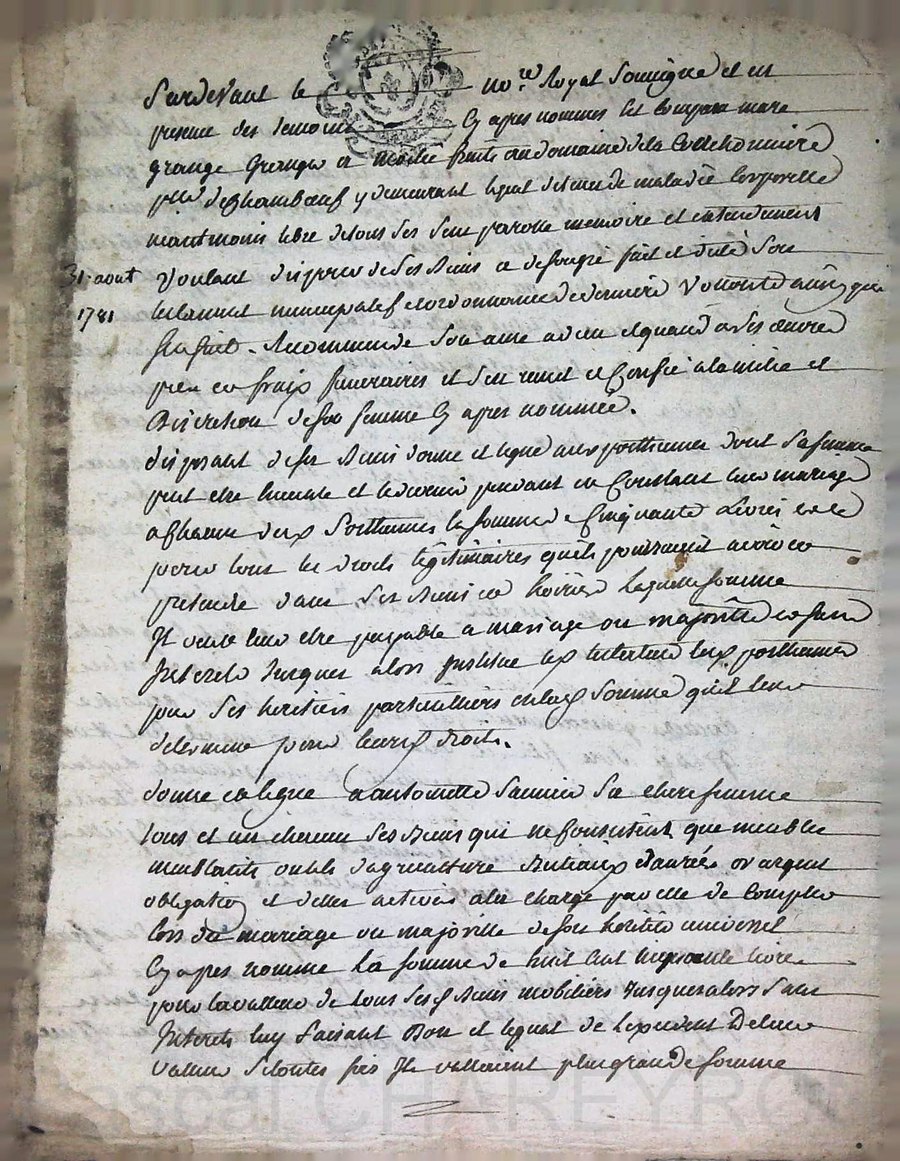 Pardevant le no.re Royal Soussigné et en
presence des temoins Cy apres nommes est Comparu mare
grange Granger a moitié fruits au domaine de la
p.sse de Chambœuf y demeurant lequel detenu de maladie Corporelle
neantmoins libre de tous ses sens parolle memoire et entendement
31 aout
1781
Voulant disposer de ses biens a de son gré fait et dicté son
testament nuncupatif et ordonnance de derniere Volonté ainsy que
sensuit. Recommande son ame a dieu et quand a ses œuvres
pies et frais funeraires il s'en remet et Confie a la et
Discretion de sa femme Cy apres nommée.
disposant de ses biens donne et legue aux posthumes dont sa femme
peut etre enceinte et le devenir pendant et Constant leur mariage
a Chacun des.d posthumes la somme de Cinquante Livres et ce
pour tous les droits légitimaires qu'ils pourroient avoir et
pretendre dans ses biens et hoirie Laquelle somme
Il veut leur etre payable a mariage ou majorité et sans
Interets Jusques alors Institue led testateur lesd posthumes
pour ses heritiers particulliers en lad somme qu'il leur
determine pour leursd droits.
donne et legue a antoinette sa chere femme
tous et un chacun ses biens qui ne Consistent que meubles
meublants outils d'agriculture Bestiaux danrées or argent
obligation et dettes actives a la charge par elle de Compter
lors du mariage ou majorité de son heritier universel
Cy apres nommé La somme de huit Cent livres
pour la valleur de tous sesd biens mobiliers Jusques alors sans
Interets luy faisant Don et legat de l'excedent De leur
valleur si toutes fois Ils vallaient plus grande somme
Pascal CHAREYRON